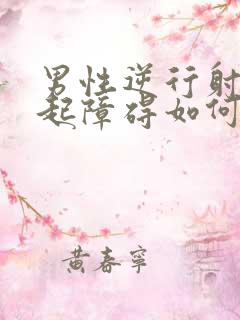 男性逆行射
起障碍如何
黄春宁